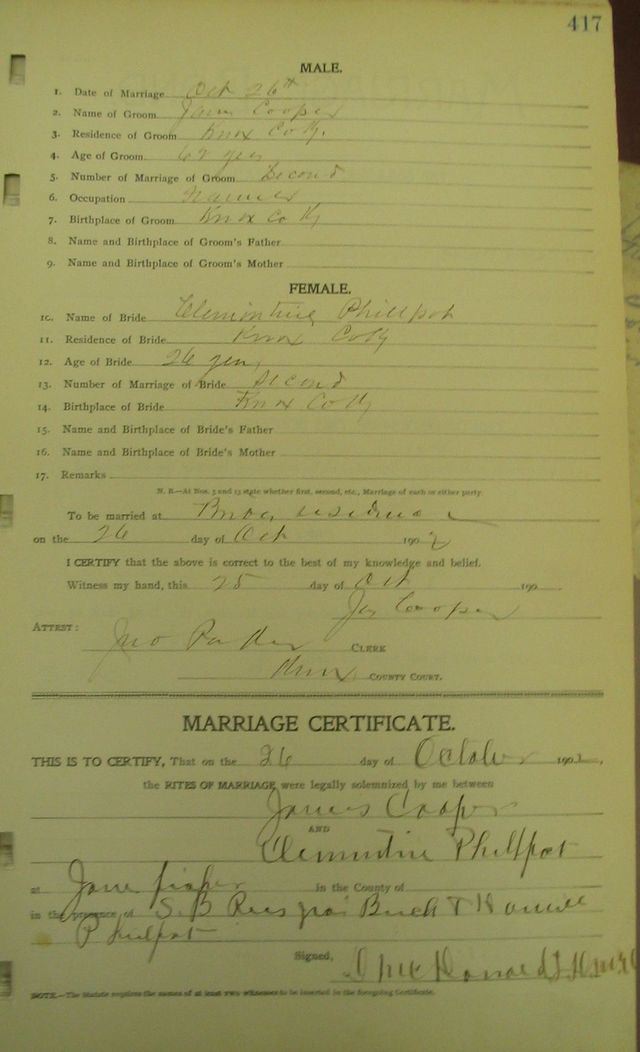 417
MALE.
1. Date of Marriage Oct 26th
2. Name of Groom James Cooper
3. Residence of Groom Knox Co Ky.
4. Age of Groom yers
5. Number of Marriage of Groom Second
6. Occupation Farmer
7. Birthplace of Groom Knox Co Ky
8. Name and Birthplace of Groom's Father
9. Name and Birthplace of Groom's Mother
FEMALE.
10. Name of Bride Clemintine Phillpot
11. Residence of Bride Knox Co Ky
12. Age of Bride 26 yers
13. Number of Marriage of Bride Second
14. Birthplace of Bride Knox Co Ky
15. Name and Birthplace of Bride's Father
16. Name and Birthplace of Bride's Mother
17. Remarks
N. B.—At Nos. 5 and 13 state whether first, second, etc., Marriage of each or either party.
To be married at Brides residence
on the 26 day of Oct 190 2
I CERTIFY that the above is correct to the best of my knowledge and belief.
Witness my hand, this 25 day of Oct 190
Jas Cooper
ATTEST:
Jno Parker CLERK
Knox COUNTY COURT.
MARRIAGE CERTIFICATE.
THIS IS TO CERTIFY, That on the 26 day of October 1902,
the RITES OF MARRIAGE were legally solemnized by me between
James Cooper
AND
Clemintine Philpot
at Jane in the County of
in the presence of S. B Burch &
Philpot
Signed,
NOTE.—The Statute requires the names of at least two witnesses to be inserted in the foregoing Certificate.